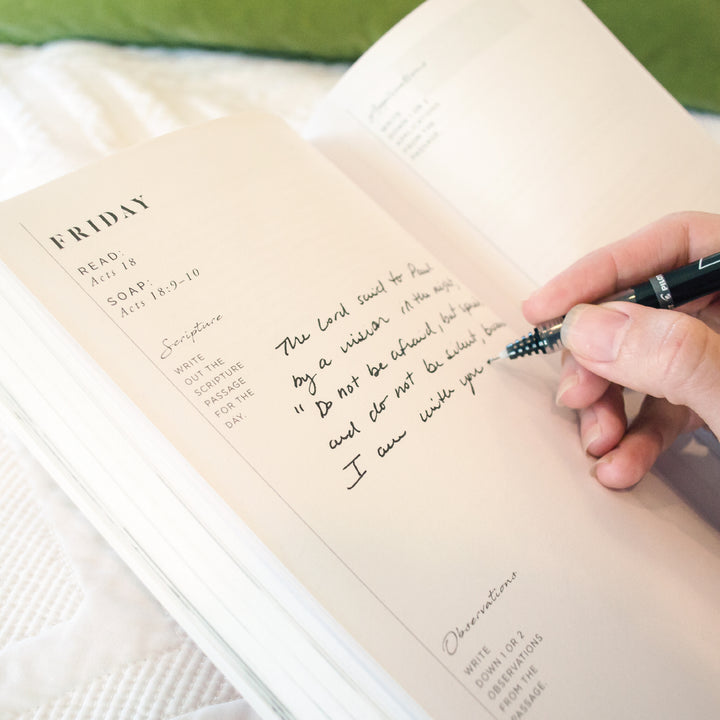 FRIDAY
READ:
Acts 18
SOAP:
Acts 18:9-10
Scripture
WRITE
OUT THE
SCRIPTURE
PASSAGE
FOR THE
DAY.
The Lord said to Paul
by a vision in the night,
"Do not be afraid, but speak
and do not be silent, because
I am with you
Observations
WRITE
DOWN 1 OR 2
OBSERVATIONS
FROM THE
PASSAGE.
Applications
WRITE
DOWN 1 OR 2
APPLICATIONS
FROM THE
PASSAGE.
PILOT